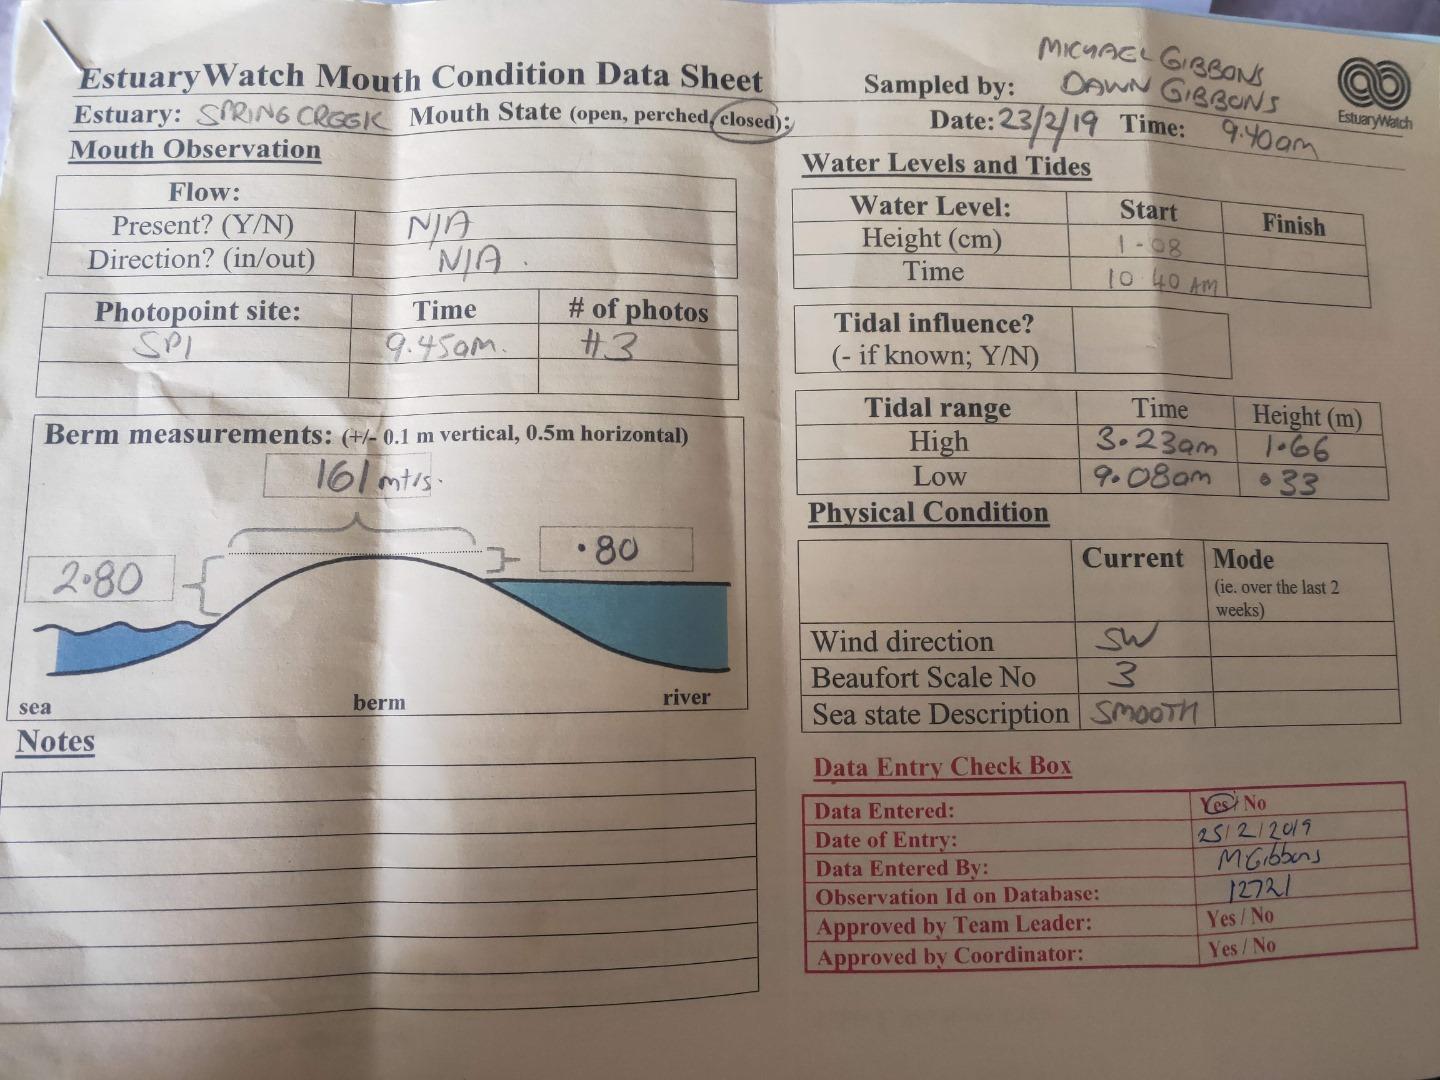 EstuaryWatch Mouth Condition Data Sheet
Estuary: SPRING CREEK Mouth State (open, perched, closed):
Sampled by: MICHAEL GIBBONS
DAWN GIBBONS
Date: 23/2/19 Time: 9.40am
EstuaryWatch
Mouth Observation
Flow:
Present? (Y/N) N/A
Direction? (in/out) N/A.
Photopoint site: Time # of photos
SP1 9.45am. #3
Berm measurements: (+/- 0.1 m vertical, 0.5m horizontal)
161 mtrs.
2.80
.80
sea berm river
Notes
Water Levels and Tides
Water Level: Start Finish
Height (cm) 1-08
Time 10 40 AM
Tidal influence?
(- if known; Y/N)
Tidal range Time Height (m)
High 3.23am 1.66
Low 9.08am .33
Physical Condition
Current Mode
(ie. over the last 2
weeks)
Wind direction SW
Beaufort Scale No 3
Sea state Description SMOOTH
Data Entry Check Box
Data Entered: Yes / No
Date of Entry: 25/2/2019
Data Entered By: MGibbons
Observation Id on Database: 12721
Approved by Team Leader: Yes / No
Approved by Coordinator: Yes / No